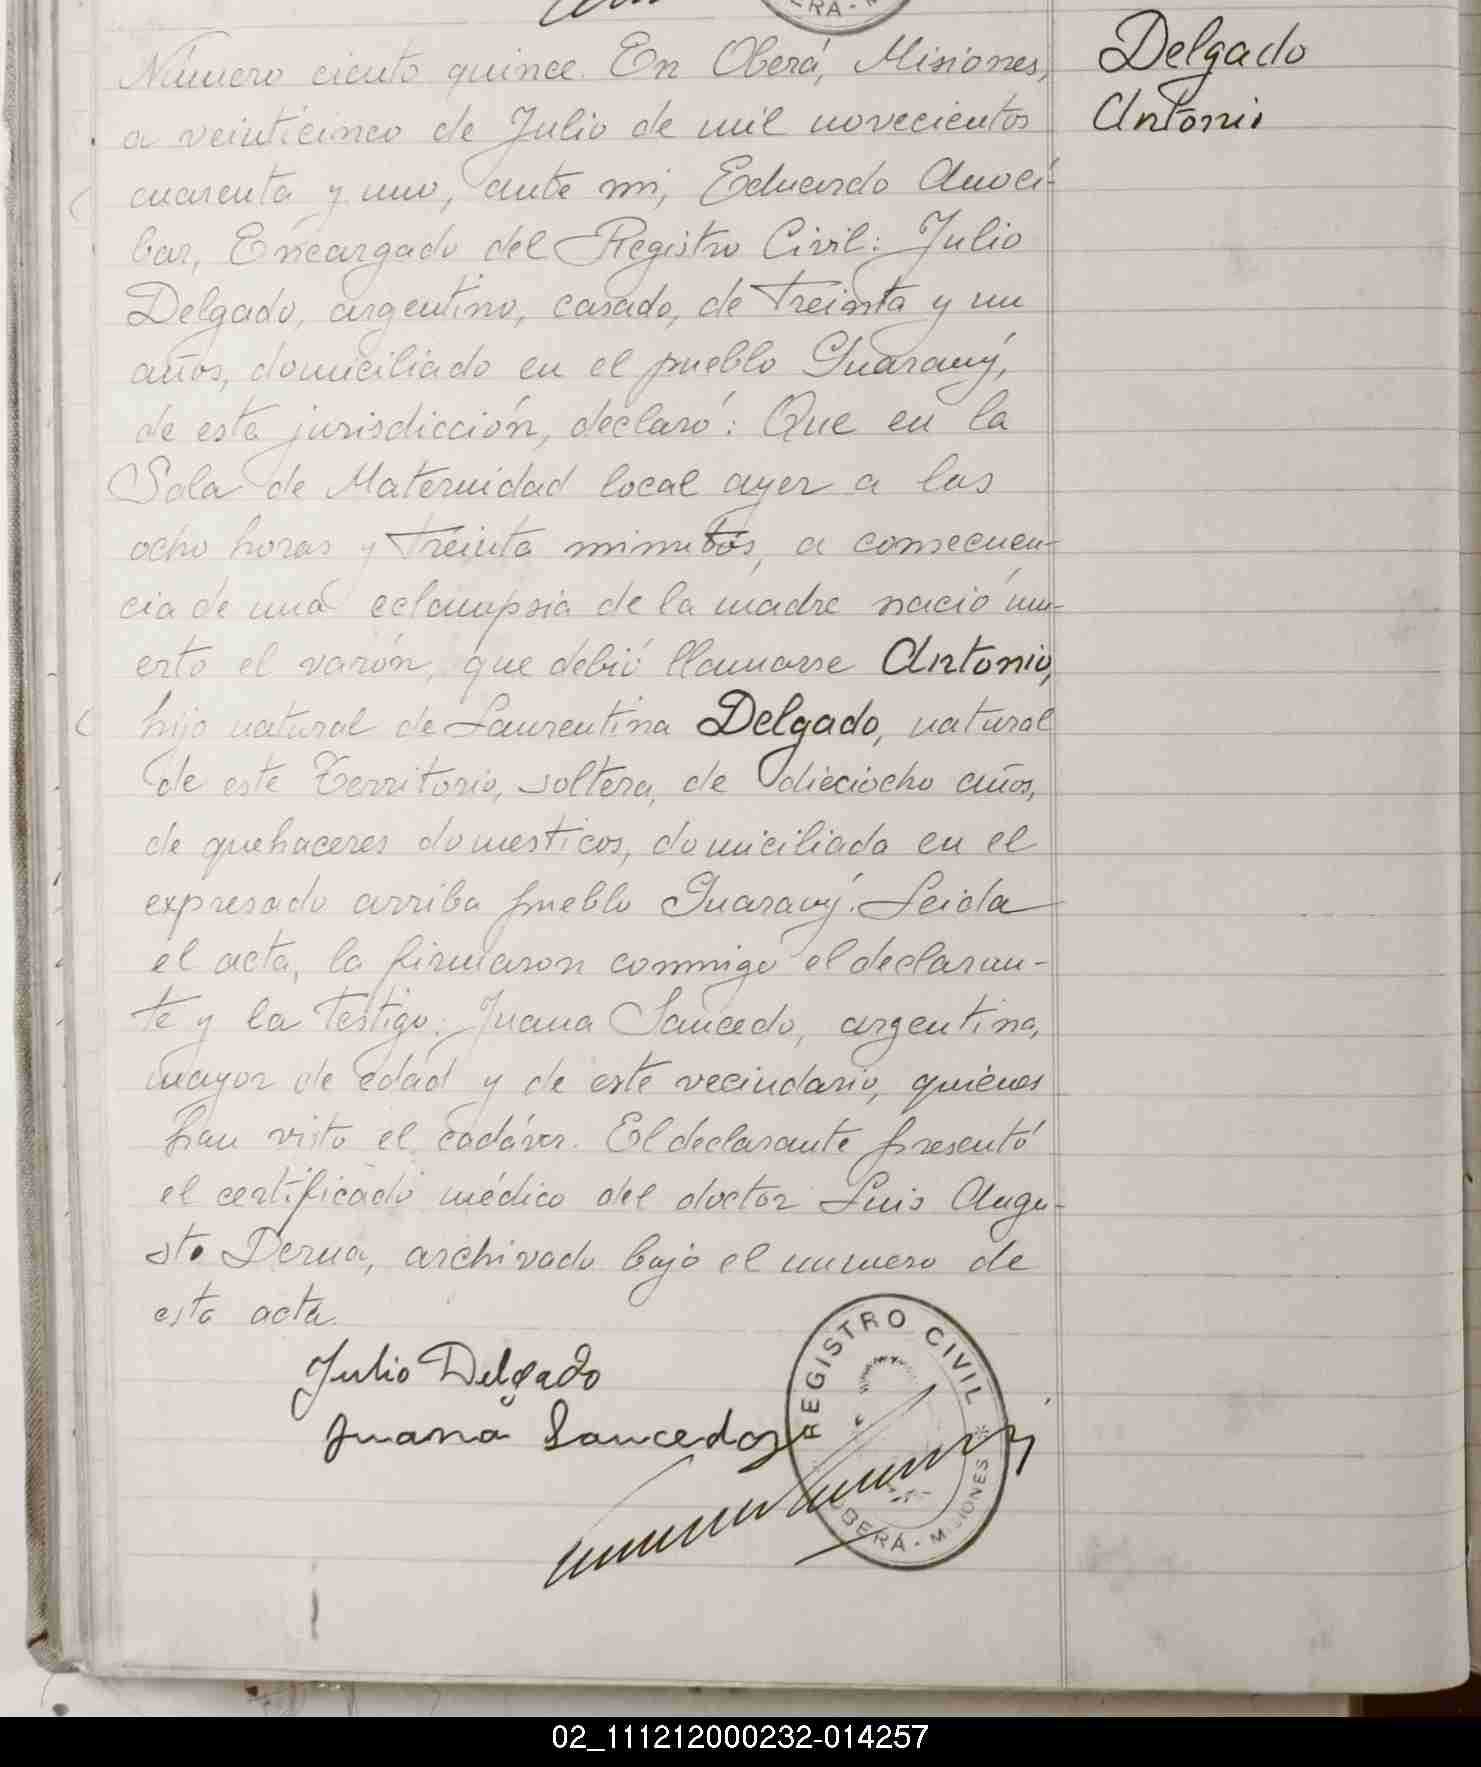 ERA - M
Número ciento quince. En Oberá, Misiones,
a veinticinco de Julio de mil novecientos
cuarenta y uno, ante mi, Eduardo Anoci-
bar, Encargado del Registro Civil: Julio
Delgado, argentino, casado, de treinta y un
años, domiciliado en el pueblo Guarany,
de esta jurisdicción, declaró: Que en la
Sala de Maternidad local ayer a las
ocho horas y treinta minutos, a consecuen-
cia de una eclampsia de la madre nació mu-
erto el varón, que debió llamarse Antonio,
hijo natural de Laurentina Delgado, natural
de este Territorio, soltera, de dieciocho años,
de quehaceres domesticos, domiciliada en el
expresado arriba pueblo Guarany. Leida
el acta, la firmaron conmigo el declaran-
te y la testigo: Juana Saucedo, argentina,
mayor de edad y de este vecindario, quienes
han visto el cadáver. El declarante presentó
el certificado médico del doctor Luis Augu-
sto Derna, archivado bajo el numero de
esta acta.
Julio Delgado
Juana Saucedo
REGISTRO CIVIL
OBERÁ - MISIONES
Delgado
Antonio
02_111212000232-014257